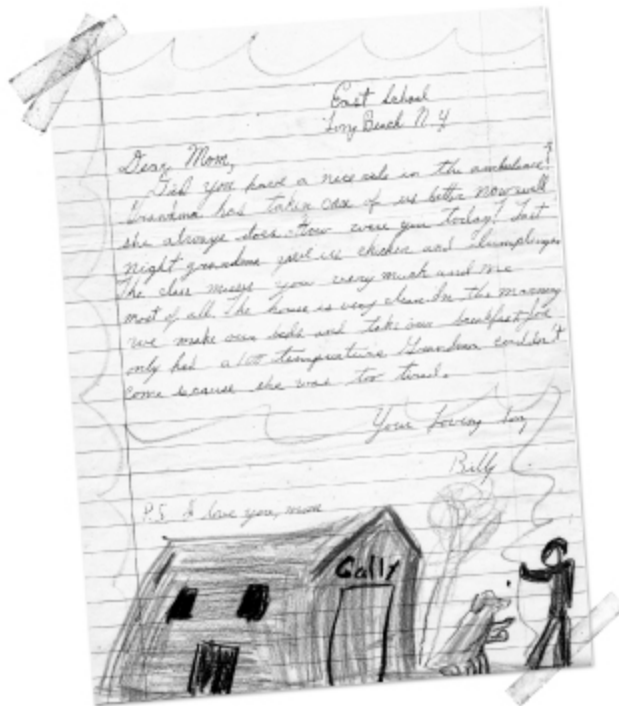 East School
Long Beach N.Y
Dear Mom,
Did you have a nice ride in the ambulance?
Grandma has taken care of us better now well
she always does. How were you today? Last
night grandma gave us chicken and dumplings
The class misses you very much and me
most of all. The house is very clean. In the morning
we make our beds and take our breakfast. Joe
only had a 100 temperature. Grandma couldn't
come because she was too tired.
Your Loving Son
Billy
P.S. I love you, mom
Cally